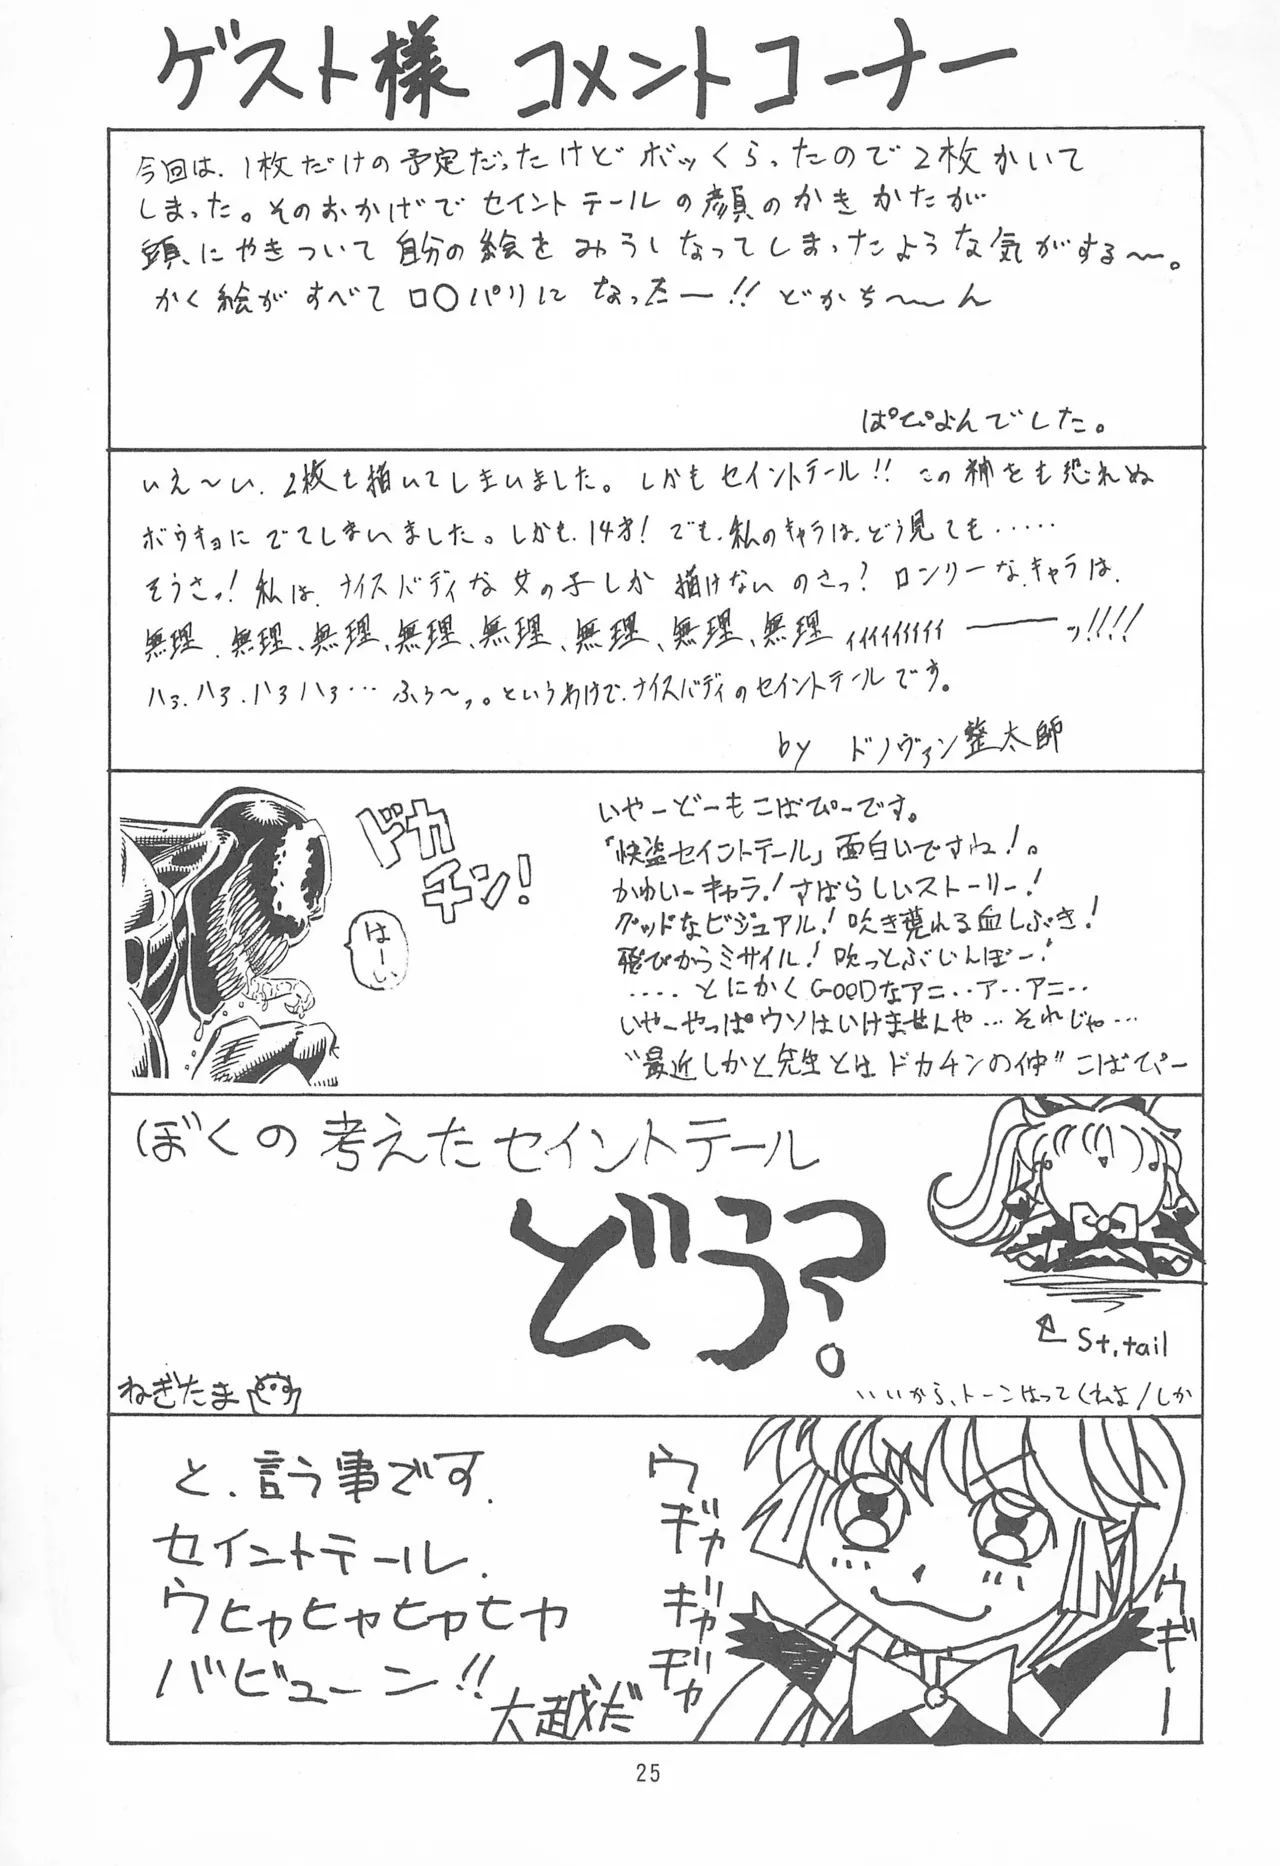 ゲスト様 コメントコーナー
今回は、1枚だけの予定だったけどボッくらったので2枚かいて
しまった。そのおかげでセイントテールの顔のかきかたが
頭にやきついて自分の絵をみうしなってしまったような気がする〜。
かく絵がすべてロ○パリになったー!! どかち〜ん
ぱぴよんでした。
いえ〜い、2枚も描いてしまいました。しかもセイントテール!! この神をも恐れぬ
ボウキョにでてしまいました。しかも、14才! でも、私のキャラは、どう見ても……
そうさっ! 私は、ナイスバディな女の子しか描けないのさっ? ロンリーな、キャラは、
無理、無理、無理、無理、無理、無理、無理、無理ィィィィィィィィ――ッ!!!!
ハァ、ハァ、ハァハァ… ふぅ〜っ。というわけで、ナイスバディのセイントテールです。
by ドノヴァン整太師
ドカチン!
はーい
いやーどーもこばぴーです。
「快盗セイントテール」面白いですね!。
かわいーキャラ! すばらしいストーリー!
グッドなビジュアル! 吹き荒れる血しぶき!
飛びかうミサイル! 吹っとぶじんぼー!
‥‥とにかくGOODなアニ‥ア‥アニ‥
いやーやっぱウソはいけませんや…それじゃ…
"最近しかと先生とはドカチンの仲" こばぴー
ぼくの考えたセイントテール
どう?
St.tail
ねぎたま
いいから、トーンはってくれよ/しか
と、言う事です.
セイントテール.
ウヒャヒャヒャヒャ
バビューン!!
大越だ
ウギャギャギャ
ウギー
25